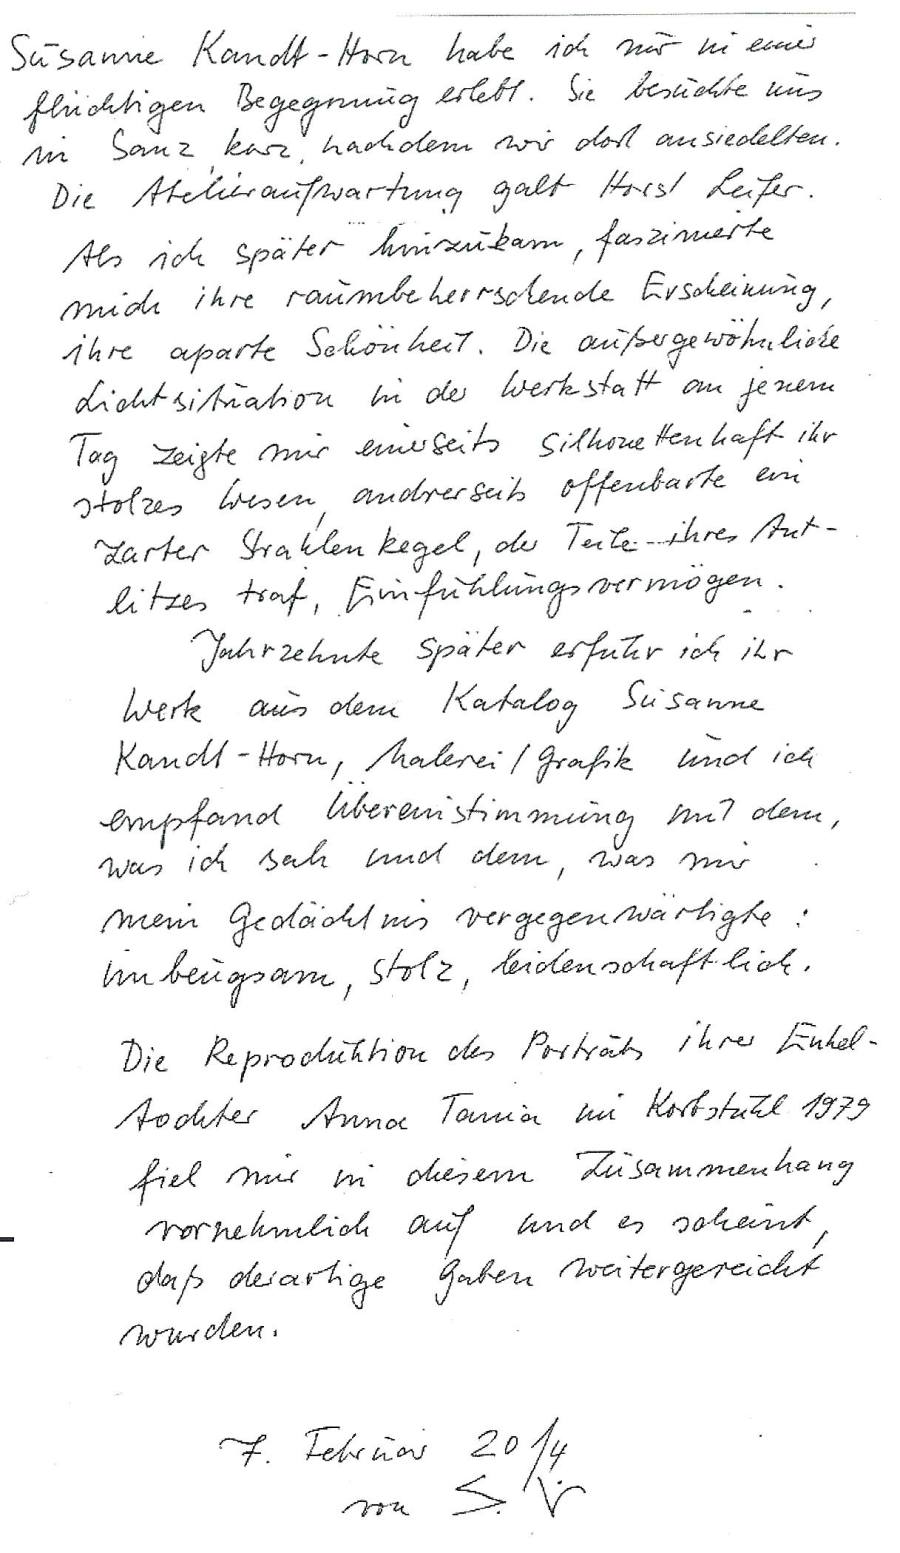 Susanne Kandt-Horn habe ich nur in einer
flüchtigen Begegnung erlebt. Sie besuchte uns
in Sanz kurz, nachdem wir dort ansiedelten.
Die Atelieraufwartung galt Horst Leifer.
Als ich später hinzukam, faszinierte
mich ihre raumbeherrschende Erscheinung,
ihre aparte Schönheit. Die außergewöhnliche
Lichtsituation in der Werkstatt an jenem
Tag zeigte mir einerseits silhouettenhaft ihr
stolzes Wesen, andrerseits offenbarte ein
zarter Strahlenkegel, der Teile ihres Ant-
litzes traf, Einfühlungsvermögen.
Jahrzehnte später erfuhr ich ihr
Werk aus dem Katalog Susanne
Kandt-Horn, Malerei/Grafik und ich
empfand Übereinstimmung mit dem,
was ich sah und dem, was mir
mein Gedächtnis vergegenwärtigte:
unbeugsam, stolz, leidenschaftlich.
Die Reproduktion des Porträts ihrer Enkel-
tochter Anna Tania im Korbstuhl 1979
fiel mir in diesem Zusammenhang
vornehmlich auf und es scheint,
daß derartige Gaben weitergereicht
wurden.
7. Februar 2014
von S.